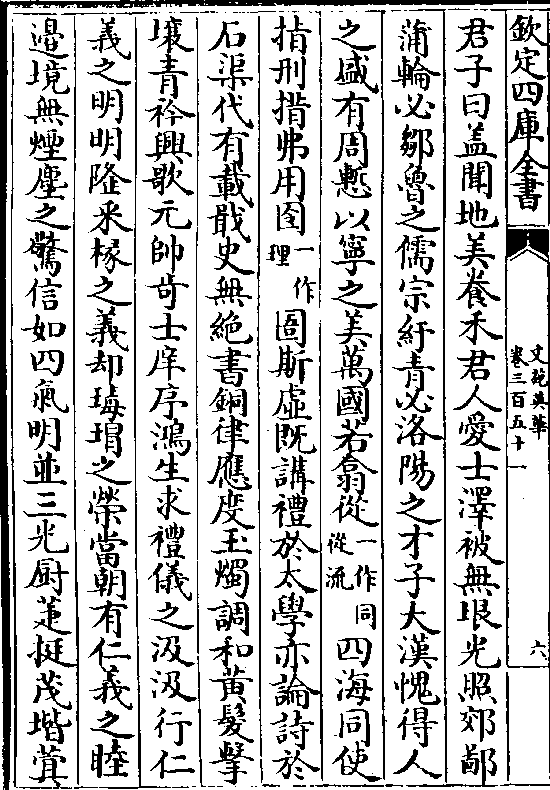 欽定四庫全書
文苑英華
卷三百五十一
六
君子曰盖聞地美養禾君人愛士澤被無垠光照郊鄙
蒲輪必鄒魯之儒宗紆青必洛陽之才子大漢愧得人
之盛有周慙以寧之美萬國若翕從一作同從流四海同使
指刑措弗用囹一作理圄斯虚既講禮於太學亦論詩於
石渠代有載戢史無絶書銅律應度玉燭調和黄髮擊
壤青衿興歌元帥奇士庠序鴻生求禮儀之汲汲行仁
義之明明隆釆椽之義却瑇瑁之榮當朝有仁義之睦
邉境無煙塵之驚信如四氣明並三光厨萐挺茂堦蓂